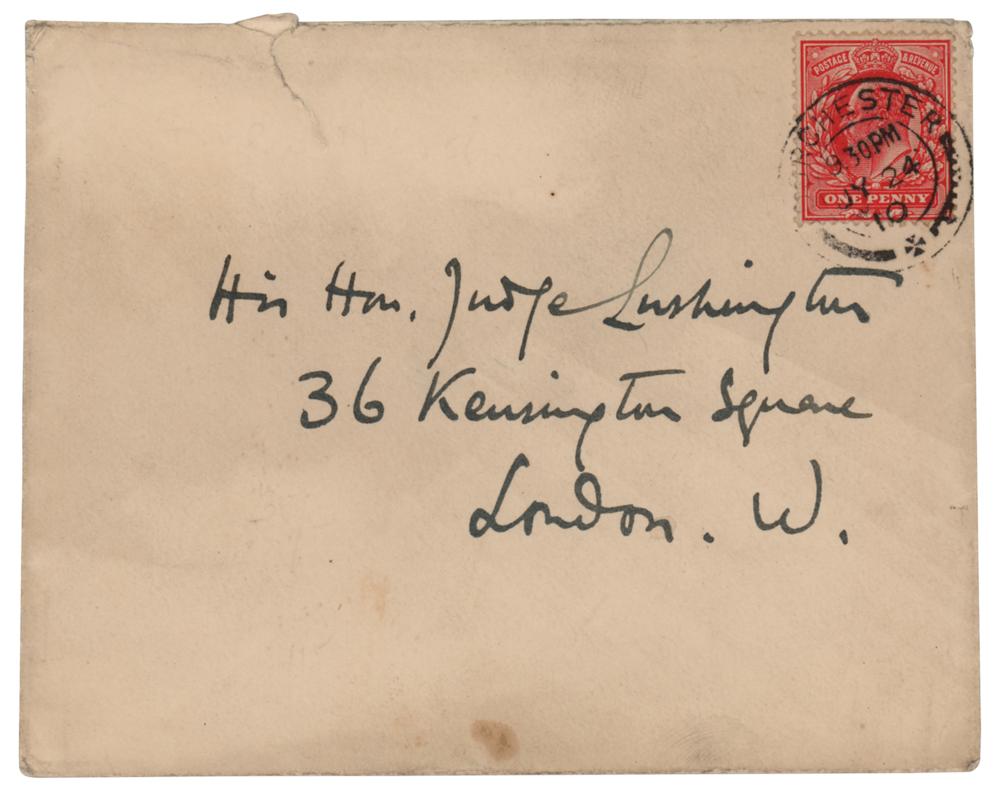 POSTAGE & REVENUE
ONE PENNY
9 30PM
JY 24
10
His Hon. Judge Lushington
36 Kensington Square
London. W.